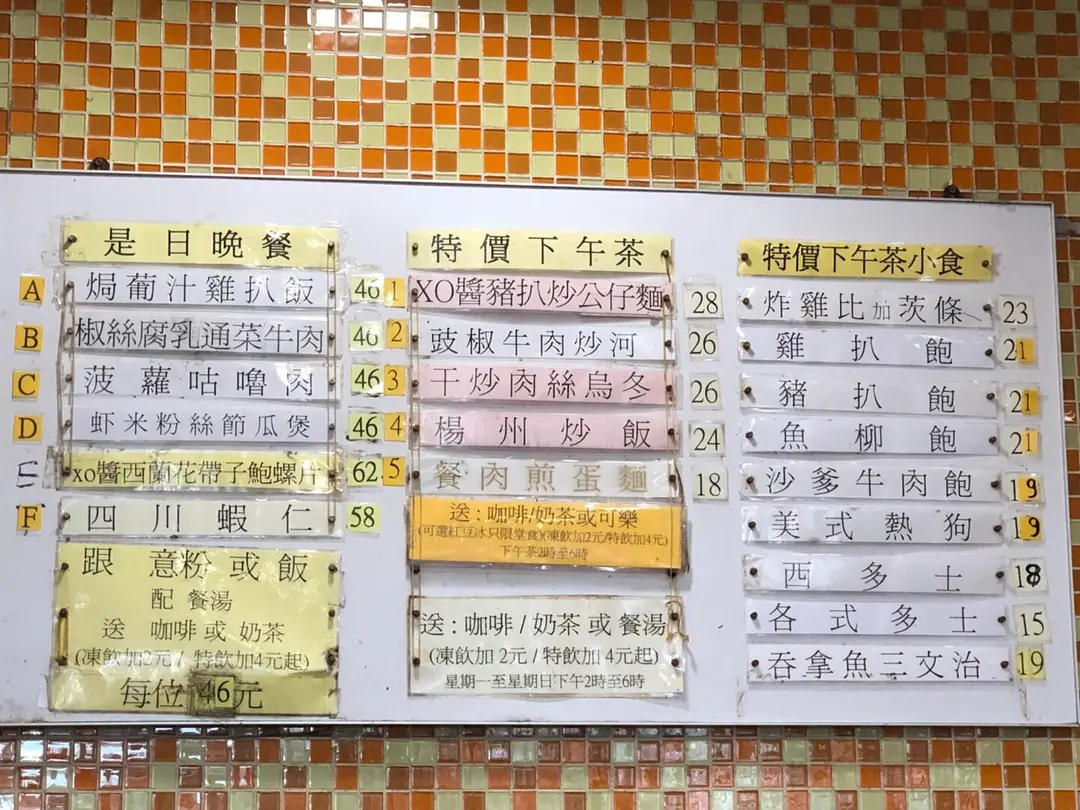 是日晚餐
A 焗葡汁雞扒飯 46
B 椒絲腐乳通菜牛肉 46
C 菠蘿咕嚕肉 46
D 虾米粉絲節瓜煲 46
E xo醬西蘭花帶子鮑螺片 62
F 四川蝦仁 58
跟 意粉或飯
配 餐湯
送 咖啡或 奶茶
(凍飲加2元 / 特飲加4元起)
每位 46元
特價下午茶
1 XO醬豬扒炒公仔麵 28
2 豉椒牛肉炒河 26
3 干炒肉絲烏冬 26
4 楊州炒飯 24
5 餐肉煎蛋麵 18
送 : 咖啡/奶茶或可樂
(可選紅豆冰只限堂食)(凍飲加2元/特飲加4元)
下午茶2時至6時
送 : 咖啡 / 奶茶 或 餐湯
(凍飲加 2元 / 特飲加 4元起)
星期一至星期日下午2時至6時
特價下午茶小食
炸雞比加茨條 23
雞扒飽 21
豬扒飽 21
魚柳飽 21
沙爹牛肉飽 19
美式熱狗 19
西多士 18
各式多士 15
吞拿魚三文治 19